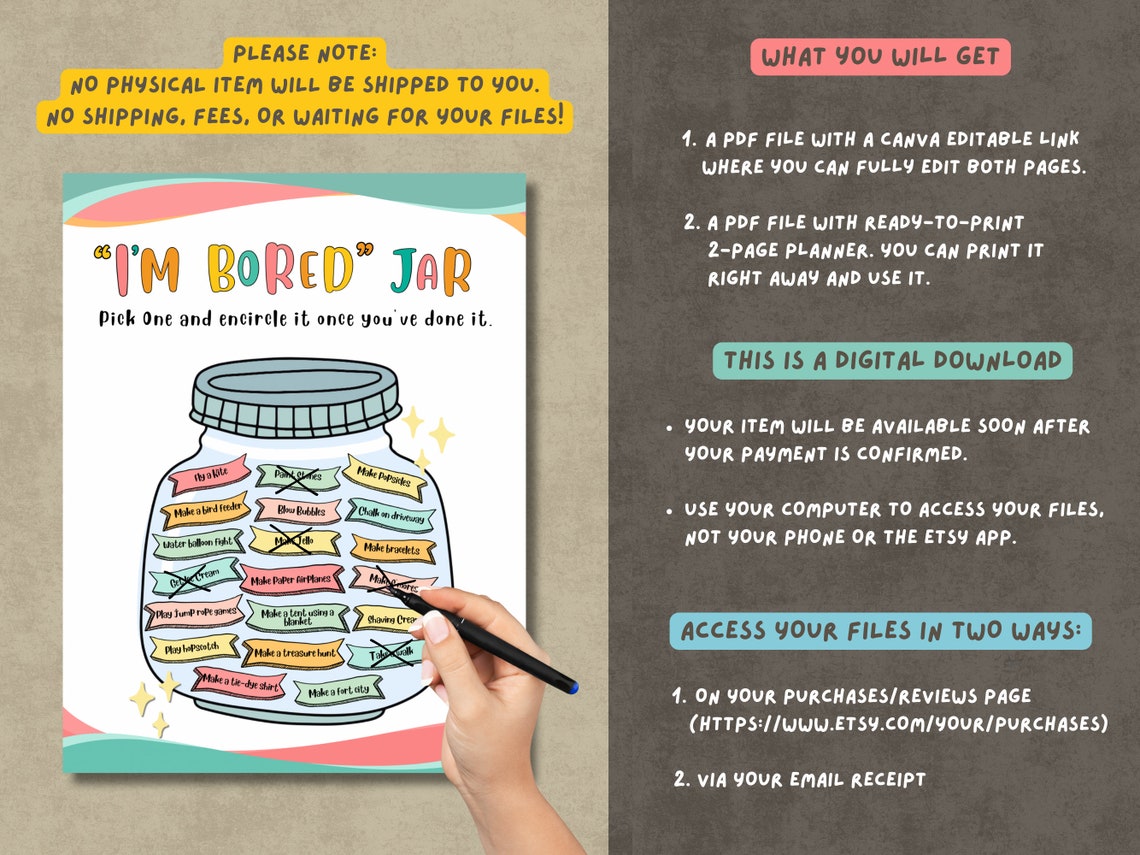 PLEASE NOTE:
NO PHYSICAL ITEM WILL BE SHIPPED TO YOU.
NO SHIPPING, FEES, OR WAITING FOR YOUR FILES!
"I'M BORED" JAR
Pick One and encircle it once you've done it.
Fly a kite
Paint Stones
Make Popsicles
Make a bird feeder
Blow Bubbles
Chalk on driveway
Water balloon fight
Make Jello
Make bracelets
Get Ice Cream
Make Paper Airplanes
Make S'mores
Play Jump rope games
Make a tent using a
blanket
Shaving Crea
Play hopscotch
Make a treasure hunt
Take a walk
Make a tie-dye shirt
Make a fort city
WHAT YOU WILL GET
1. A PDF FILE WITH A CANVA EDITABLE LINK
WHERE YOU CAN FULLY EDIT BOTH PAGES.
2. A PDF FILE WITH READY-TO-PRINT
2-PAGE PLANNER. YOU CAN PRINT IT
RIGHT AWAY AND USE IT.
THIS IS A DIGITAL DOWNLOAD
• YOUR ITEM WILL BE AVAILABLE SOON AFTER
YOUR PAYMENT IS CONFIRMED.
• USE YOUR COMPUTER TO ACCESS YOUR FILES,
NOT YOUR PHONE OR THE ETSY APP.
ACCESS YOUR FILES IN TWO WAYS:
1. ON YOUR PURCHASES/REVIEWS PAGE
(HTTPS://WWW.ETSY.COM/YOUR/PURCHASES)
2. VIA YOUR EMAIL RECEIPT